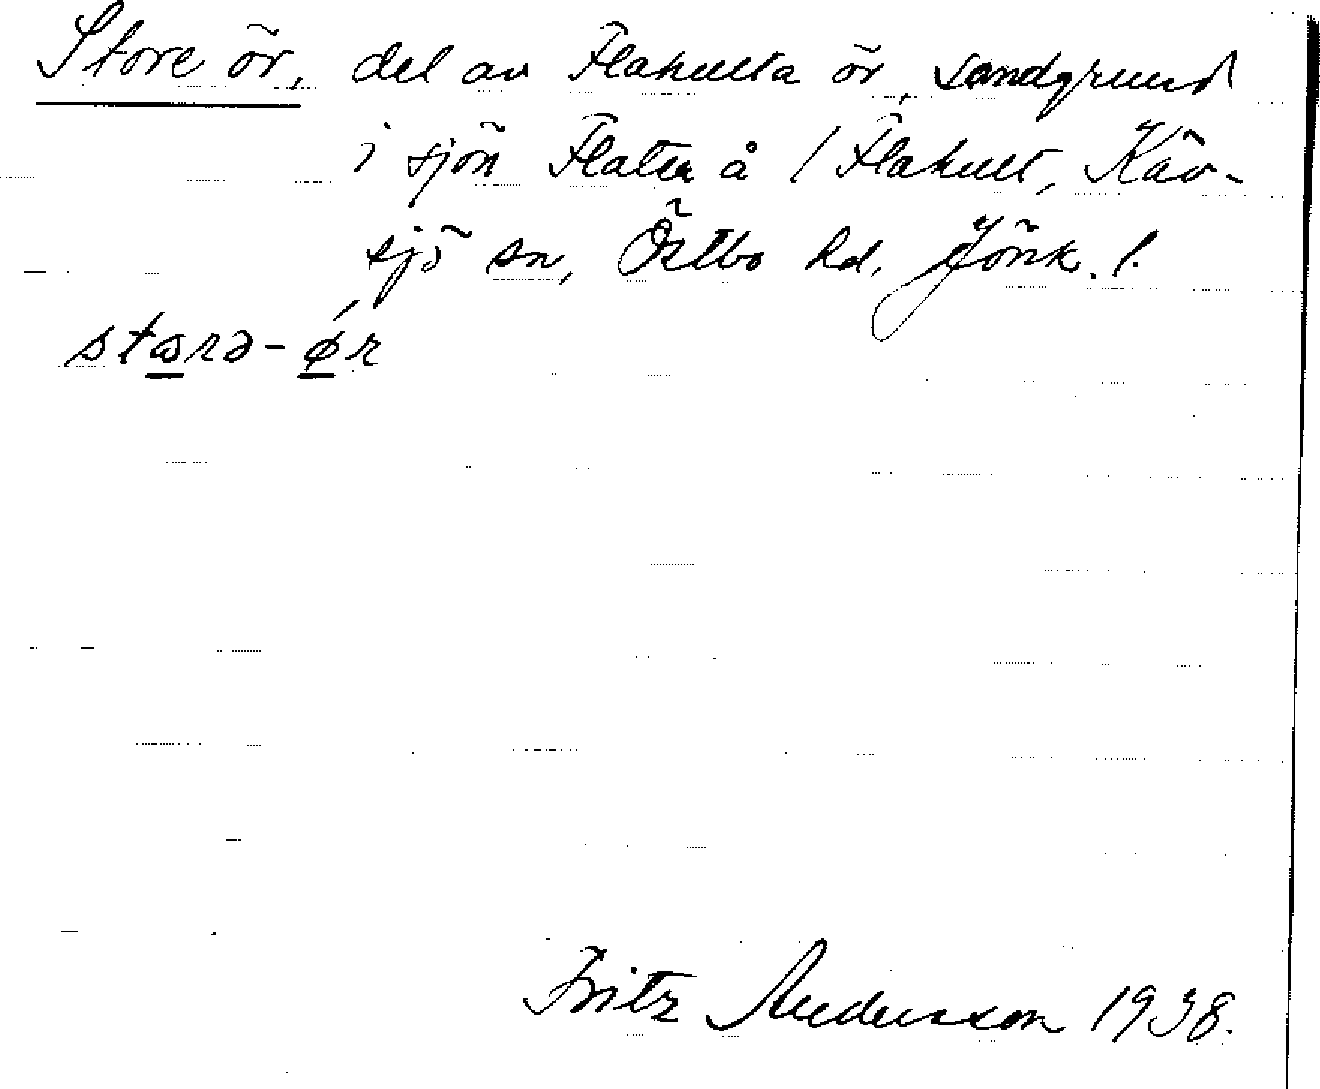 Store ör, del av Flahulta ör, sandgrund
i sjön Flaten å 1 Flahult, Käv-
sjö sn, Östbo hd. Jönk. l.
stɷrə-ǿr
Fritz Andersson 1938.